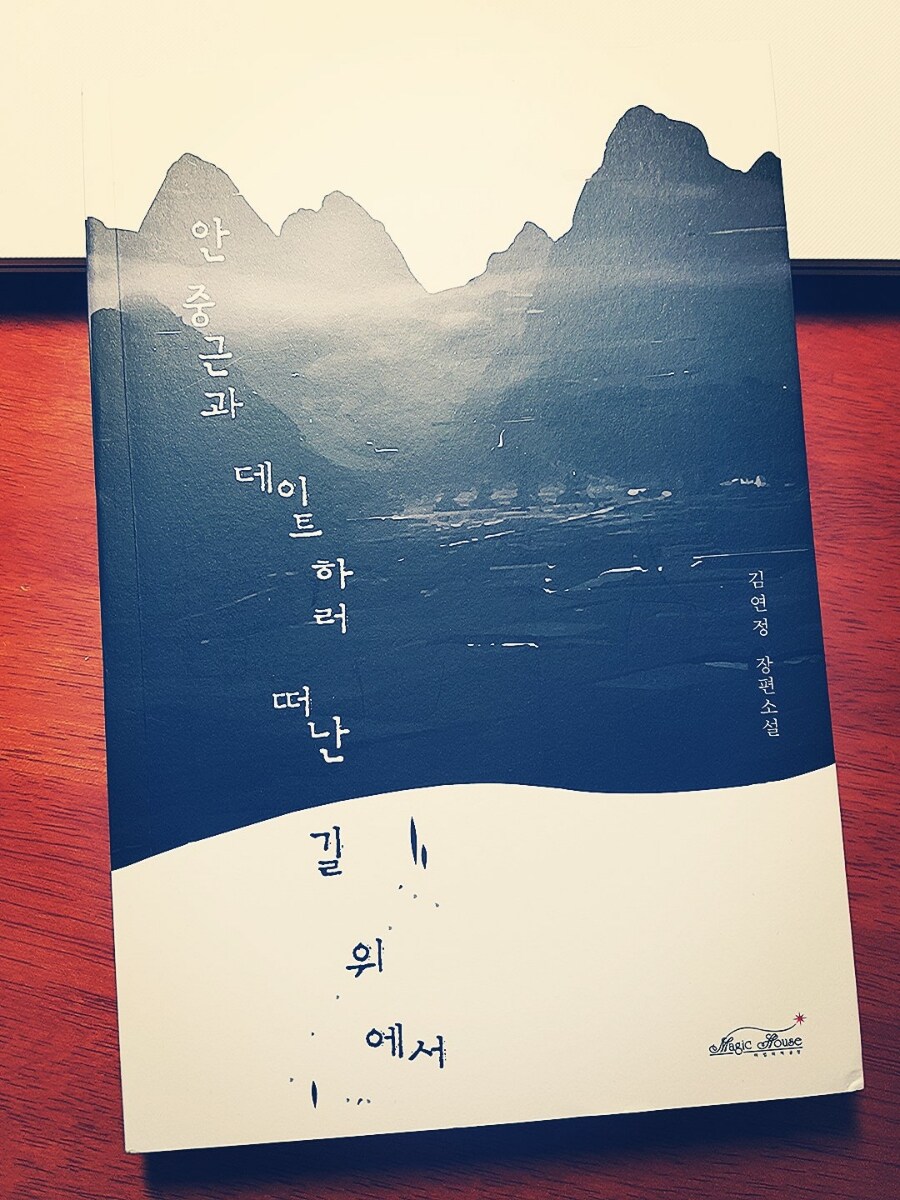 안중근과
데이트하러
떠난
길
위
에서
김연정 장편소설
Magic House